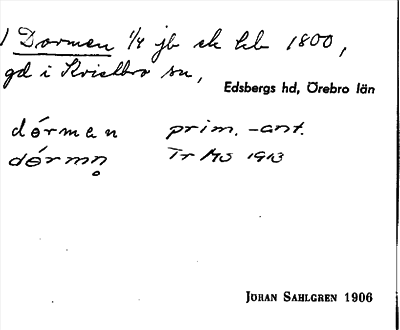 1 Dormen 1/4 jb sk kb 1800,
gd i Kvistbro sn,
Edsbergs hd, Örebro län
dórmen prim. -ant.
dórmn̥ Tr MS 1913
JOHAN SAHLGREN 1906